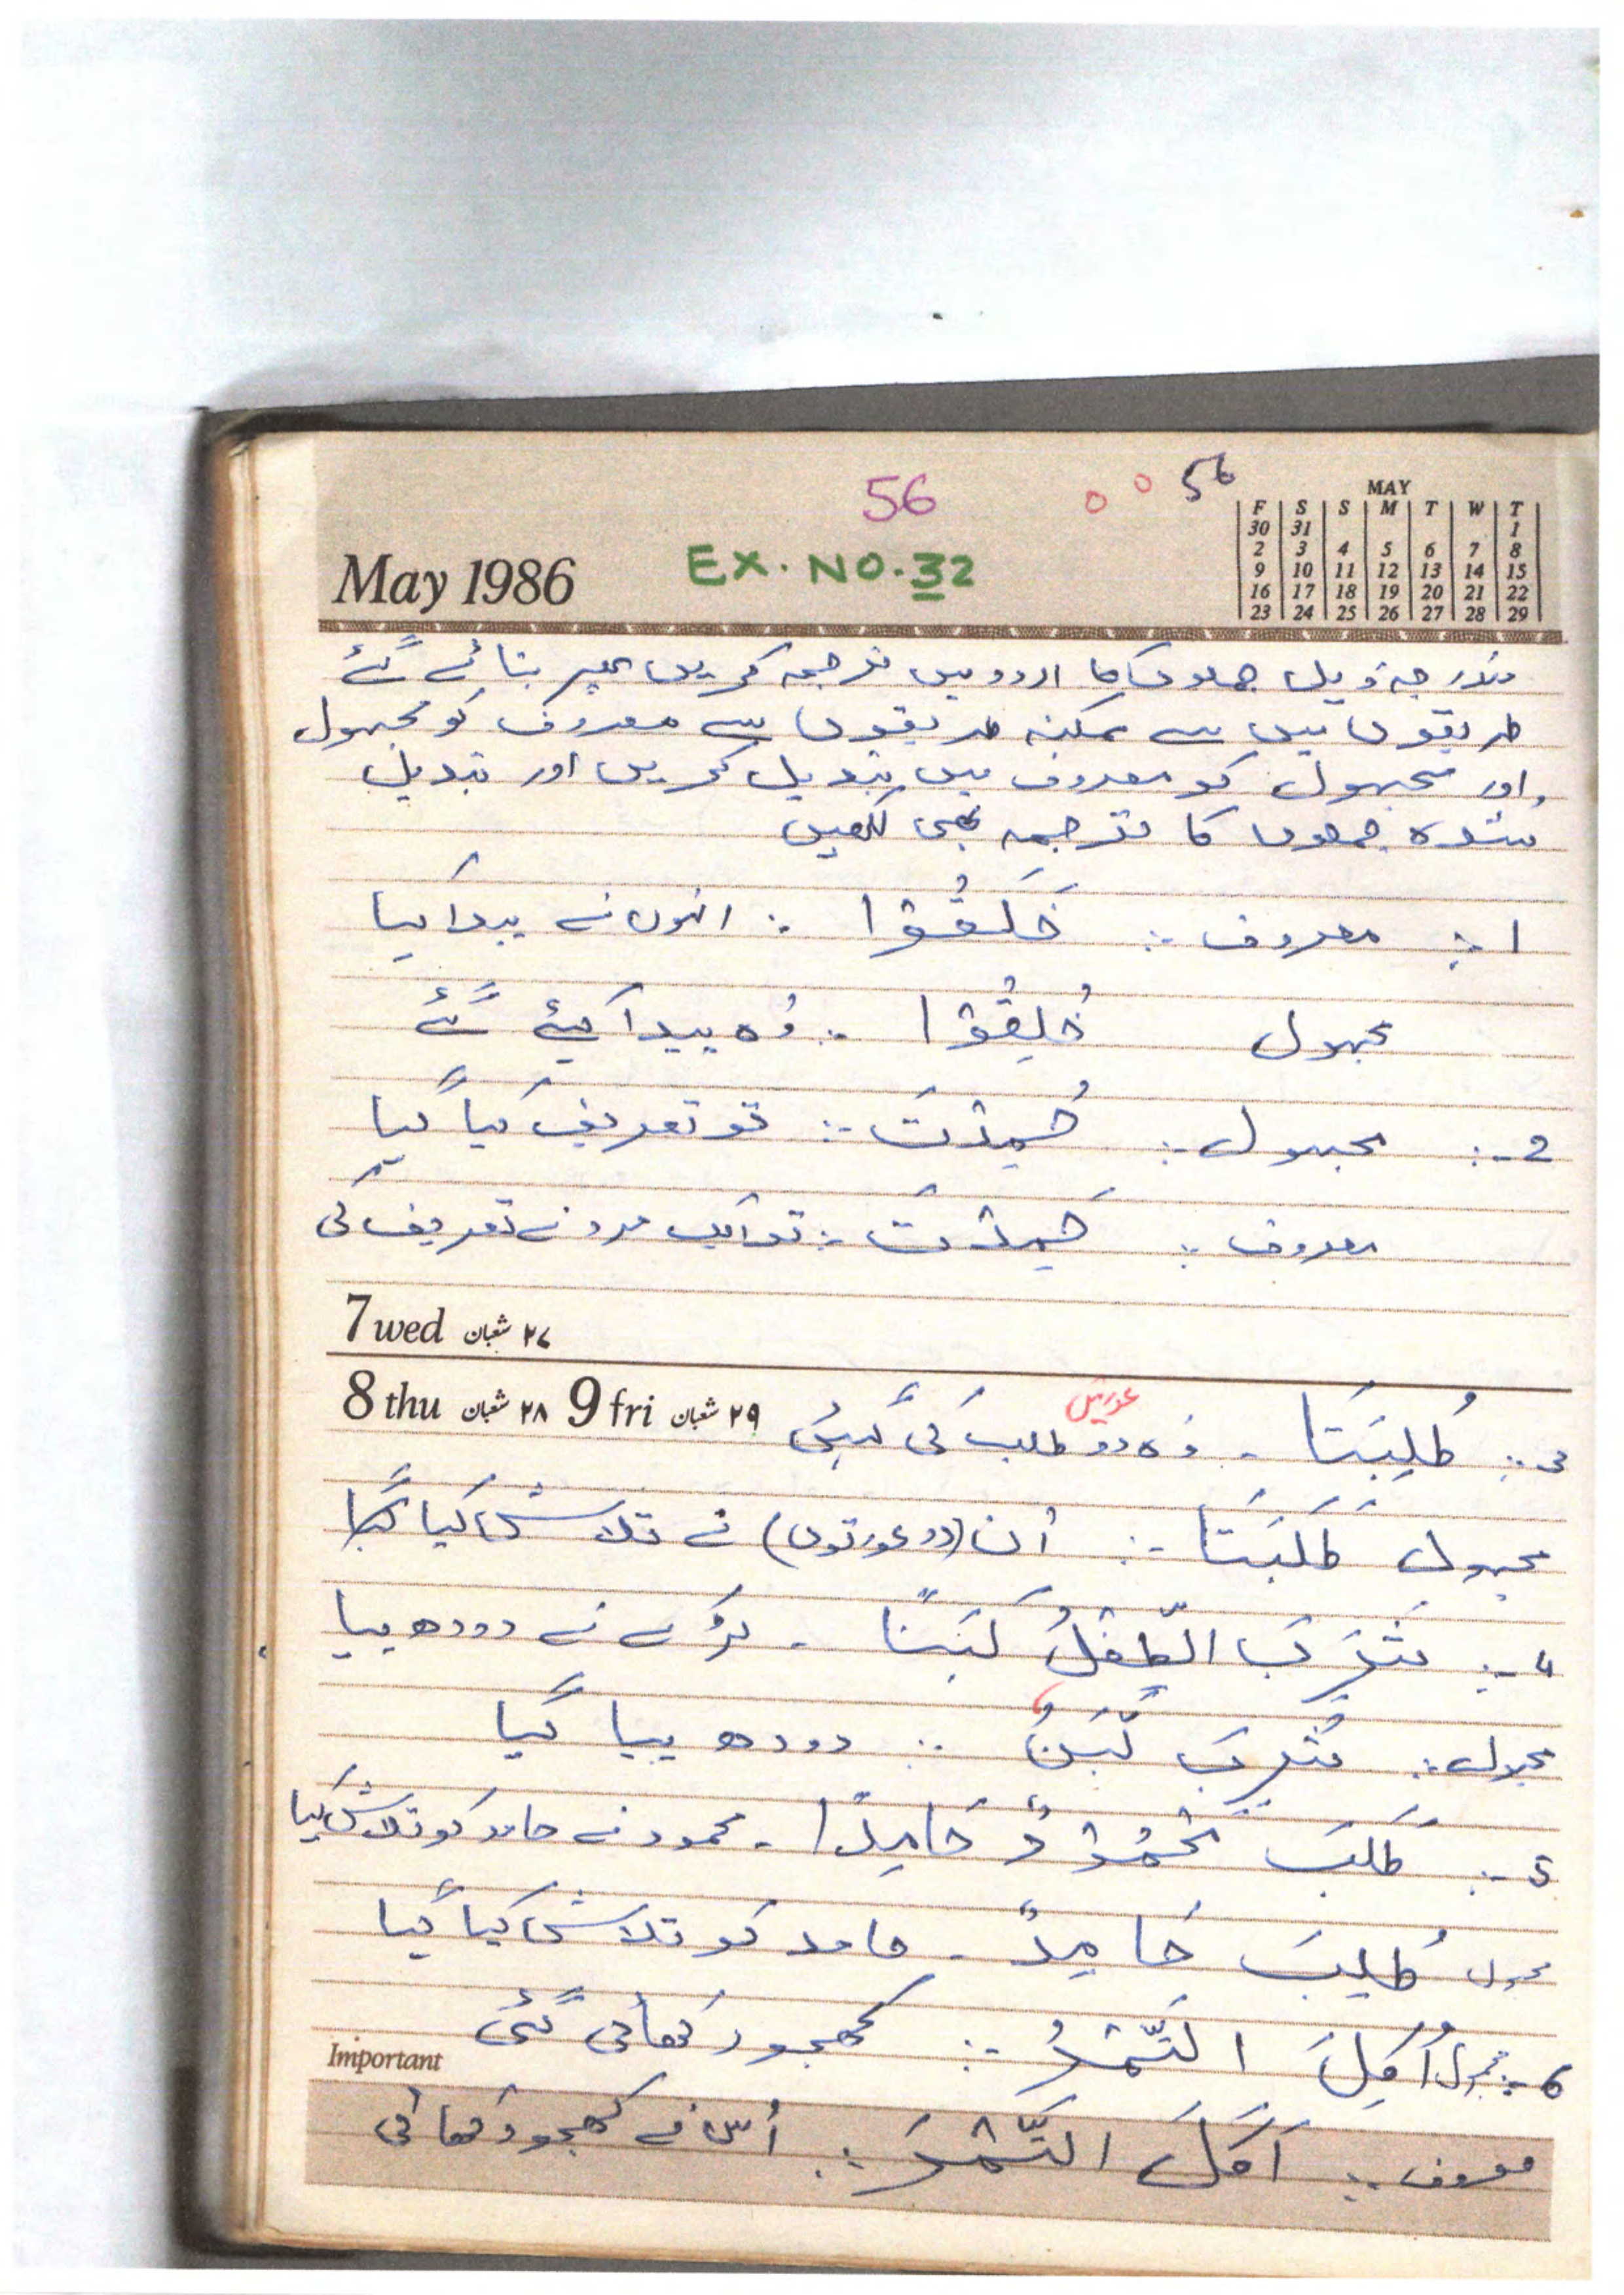 56
56
MAY
F S S M T W T
30 31 1
2 3 4 5 6 7 8
9 10 11 12 13 14 15
16 17 18 19 20 21 22
23 24 25 26 27 28 29
May 1986
EX. NO. 32
مندرجہ ذیل جملوں کا اردو میں ترجمہ کریں پھر بتائے گئے
طریقوں میں سے ممکنہ طریقوں سے معروف کو مجہول
اور مجہول کو معروف میں تبدیل کریں اور تبدیل
شدہ جملوں کا ترجمہ بھی لکھیں
1 :- معروف :- خَلَقُوْا :- انہوں نے پیدا کیا
مجہول خُلِقُوْا :- وُہ پیدا کیئے گئے
2 :- مجہول :- حُمِدْتَ :- تو تعریف کیا گیا
معروف :- حَمِدْتَ :- تو ایک مرد نے تعریف کی
7 wed ۲۷ شعبان
8 thu ۲۸ شعبان 9 fri ۲۹ شعبان
عورتیں
3 :- طُلِبَتَا - وُہ دو طلب کی گئیں
مجہول طَلَبَتَا :- اُن (دو عورتوں) نے تلاش کیا
4 :- شَرِبَ الطِّفْلُ لَبَنًا - لڑکے نے دودھ پیا
مجہول :- شُرِبَ لَبَنٌ :- دودھ پیا گیا
5 :- طَلَبَ مَحْمُوْدٌ حَامِدًا - محمود نے حامد کو تلاش کیا
مجہول طُلِبَ حَامِدٌ - حامد کو تلاش کیا گیا
6 :- مجہول اُکِلَ التَّمْرُ :- کھجور کھائی گئی
Important
معروف :- اَکَلَ التَّمْرَ :- اُس نے کھجور کھائی